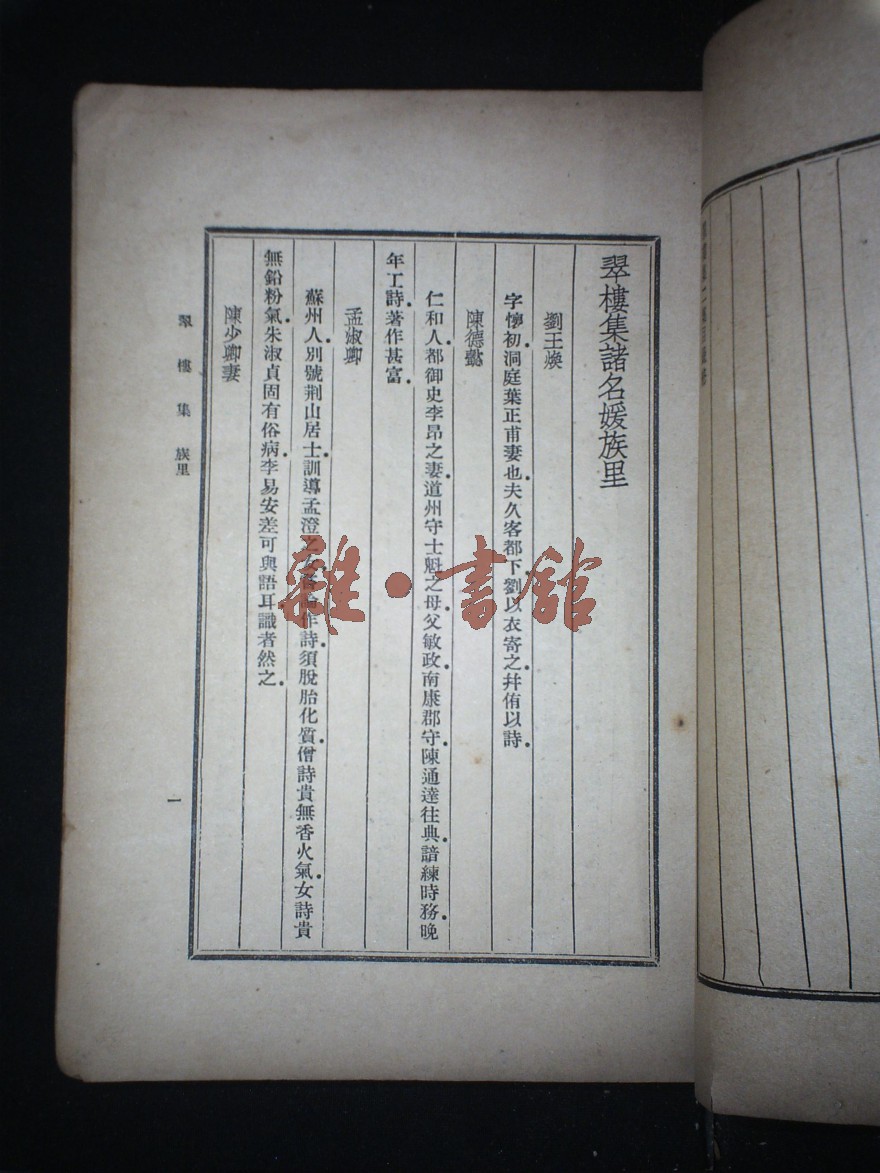 翠樓集諸名媛族里
劉王煥
字懷初洞庭葉正甫妻也夫久客都下劉以衣寄之幷侑以詩
陳德懿
仁和人都御史李昂之妻道州守士魁之母父敏政南康郡守陳通達往典諳練時務晚
年工詩著作甚富
孟淑卿
蘇州人別號荆山居士訓導孟澄之女作詩須脫胎化質僧詩貴無香火氣女詩貴
無鉛粉氣朱淑貞固有俗病李易安差可與語耳識者然之
陳少卿妻
翠樓集 族里
一
雜·書館